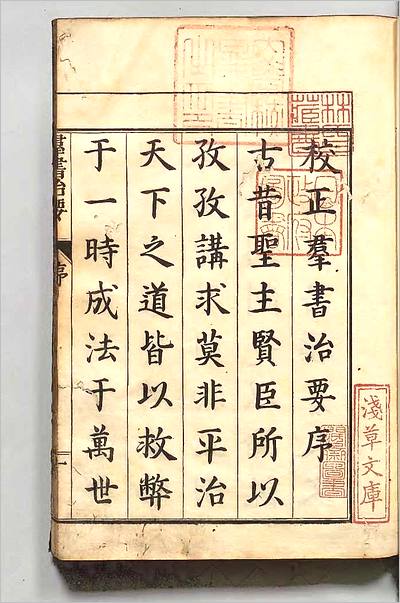 校正羣書治要序
古昔聖主賢臣所以
孜孜講求莫非平治
天下之道皆以救弊
于一時成法于萬世
羣書治要
序
淺草文庫
林氏藏書